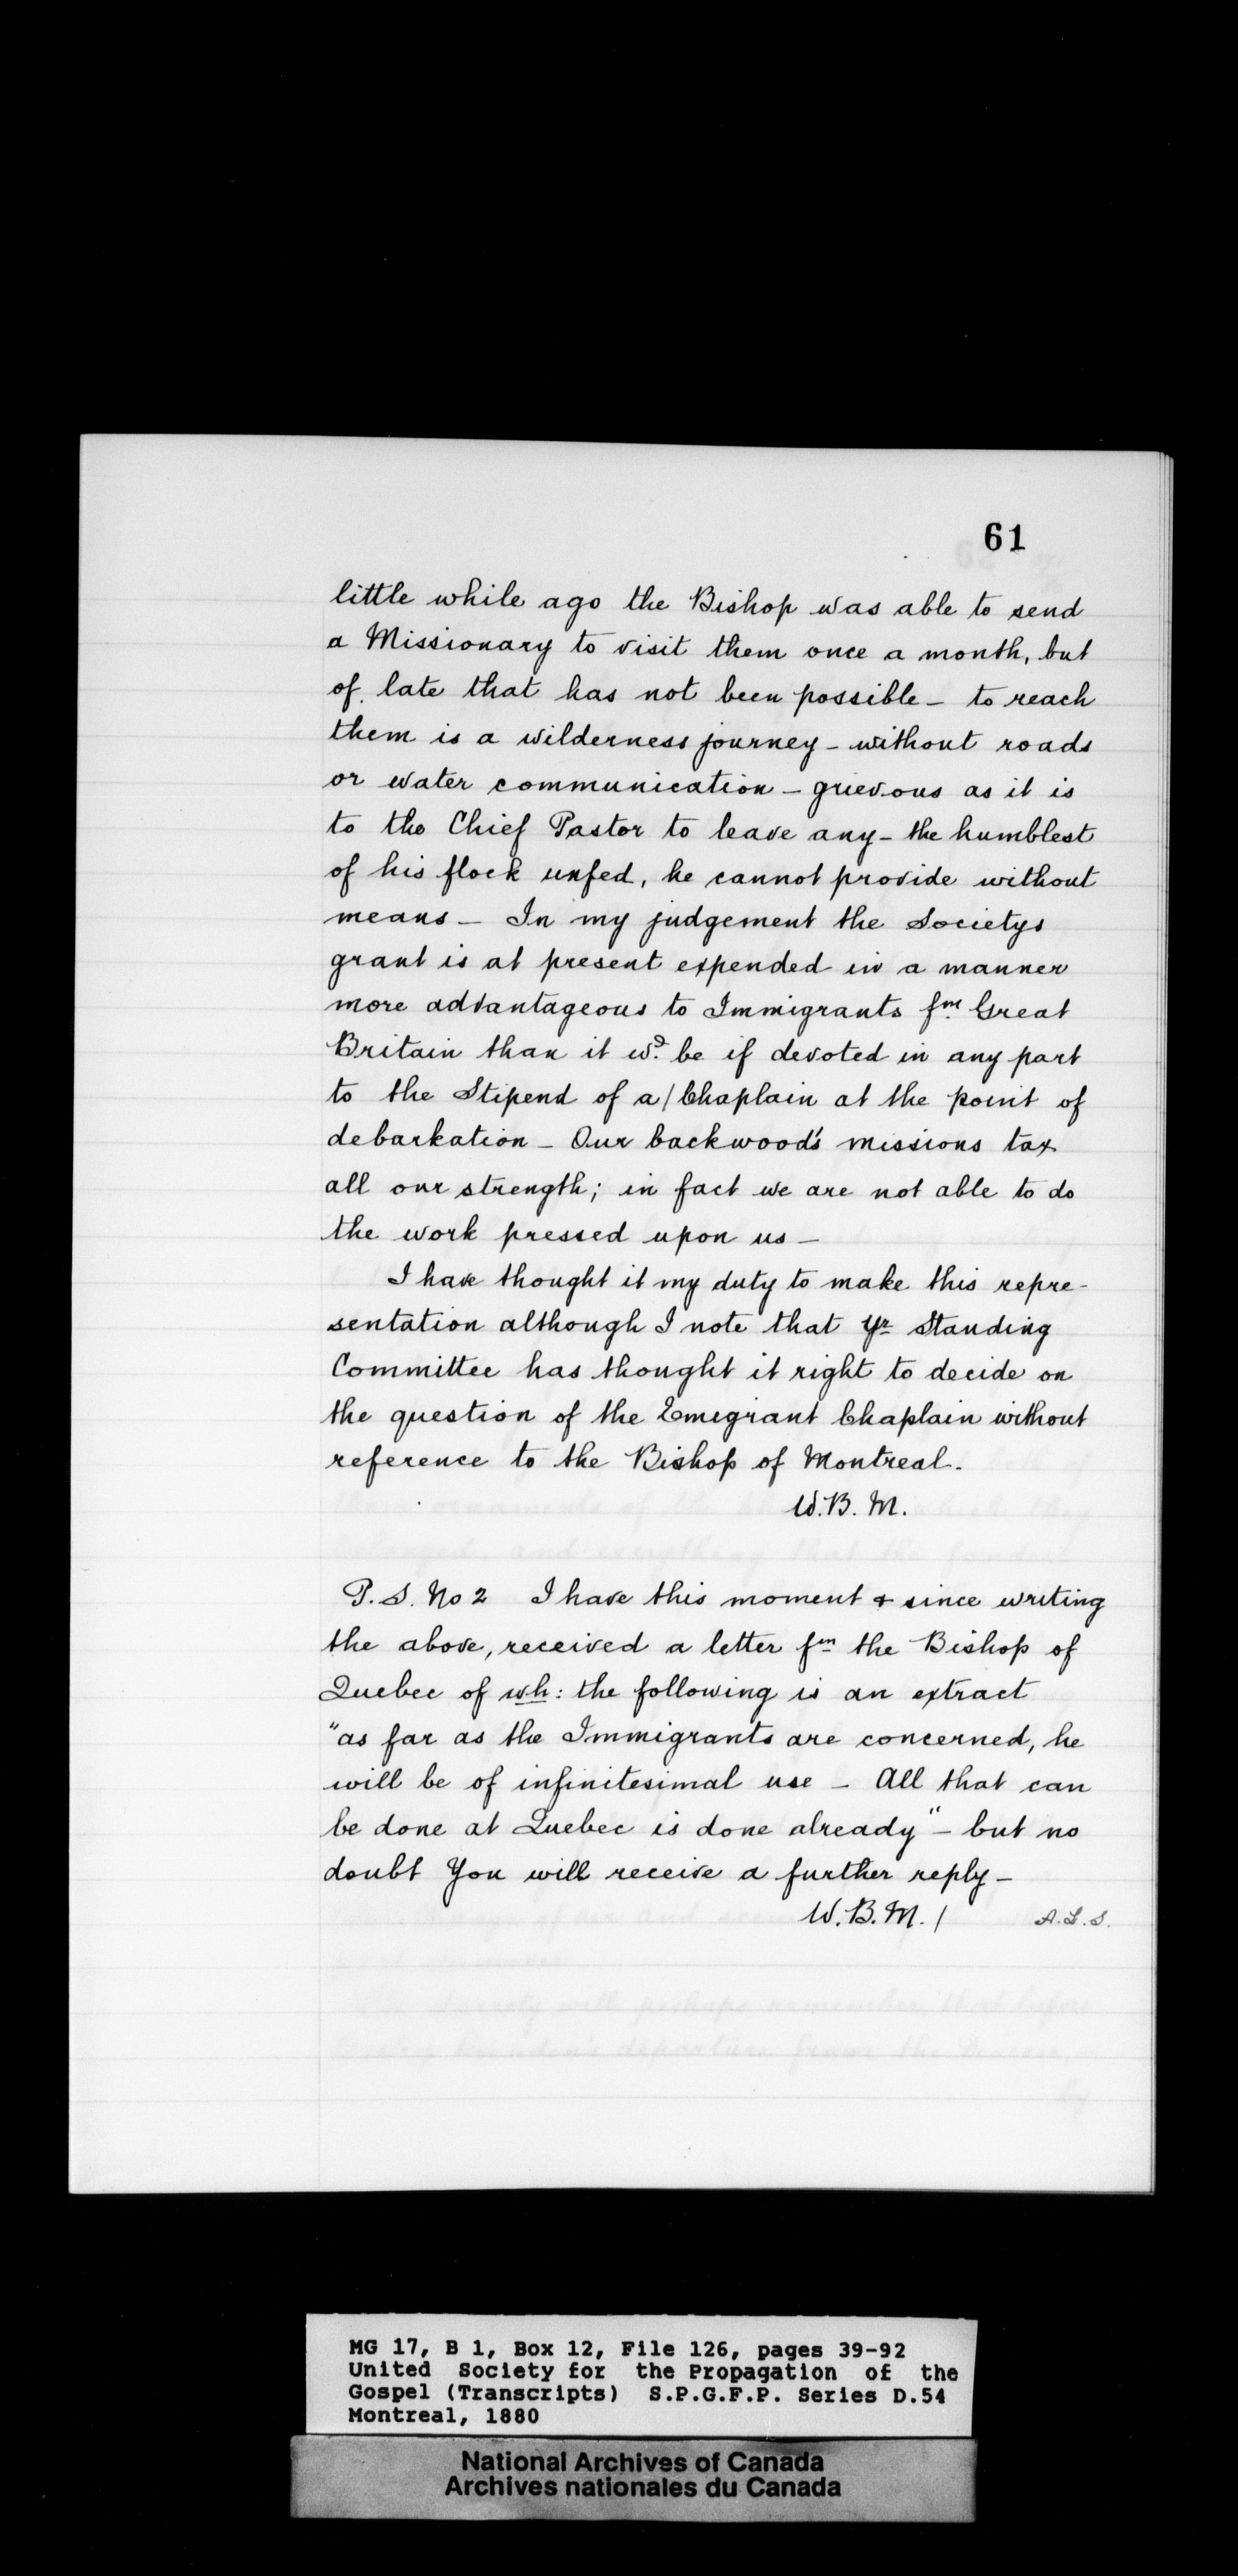 61
little while ago the Bishop was able to send
a Missionary to visit them once a month, but
of late that has not been possible – to reach
them is a wilderness journey – without roads
or water communication – grievous as it is
to the Chief Pastor to leave any – the humblest
of his flock unfed, he cannot provide without
means – In my judgement the Societys
grant is at present expended in a manner
more advantageous to Immigrants fm. Great
Britain than it wd. be if devoted in any part
to the Stipend of a/Chaplain at the point of
debarkation – Our backwood's missions tax
all our strength; in fact we are not able to do
the work pressed upon us –
I have thought it my duty to make this repre-
sentation although I note that Yr Standing
Committee has thought it right to decide on
the question of the Emigrant Chaplain without
reference to the Bishop of Montreal.
W.B.M.
P.S. No 2 I have this moment & since writing
the above, received a letter fm the Bishop of
Quebec of wh: the following is an extract
"as far as the Immigrants are concerned, he
will be of infinitesimal use – All that can
be done at Quebec is done already" – but no
doubt You will receive a further reply –
W.B.M. / A.L.S.
MG 17, B 1, Box 12, File 126, pages 39-92
United Society for the Propagation of the
Gospel (Transcripts) S.P.G.F.P. Series D.54
Montreal, 1880
National Archives of Canada
Archives nationales du Canada